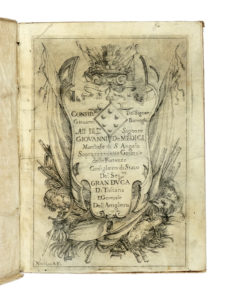 CONSID
Del Signor
Giovanni
All Ill.
Signore
GIOVANNI DE MEDICI
Marchese di S. Angelo
Sopra
Generale
delle Fortezze
Consigliero di Stato
Del Ser.
GRAN DVCA
Di Toscana
E Generale
Dell Artiglieria